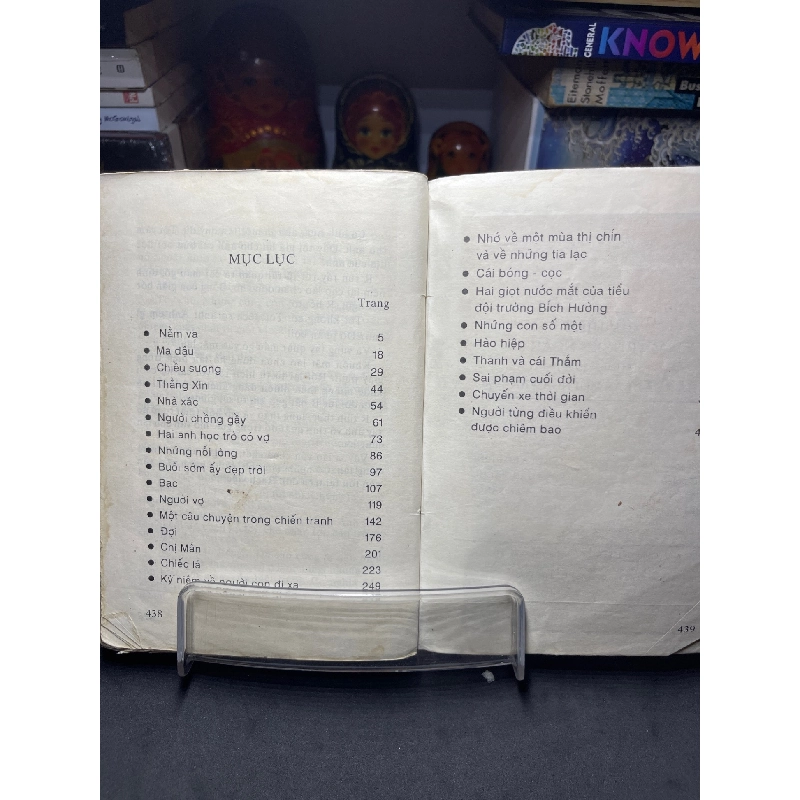 GENERAL KNOW
Eternal
Bus
McGonigal
MỤC LỤC
Trang
Nằm vạ 5
Ma đậu 18
Chiều sương 29
Thằng Xin 44
Nhà xác 54
Người chồng gầy 61
Hai anh học trò có vợ 73
Những nỗi lòng 86
Buổi sớm ấy đẹp trời 97
Bạc 107
Người vợ 119
Một câu chuyện trong chiến tranh 142
Đợi 176
Chị Màn 201
Chiếc lá 223
Kỷ niệm về người con đi xa 249
438
Nhớ về một mùa thị chín
và về những tia lạc
Cái bóng - cọc
Hai giọt nước mắt của tiểu
đội trưởng Bích Hường
Những con số một
Hảo hiệp
Thanh và cái Thắm
Sai phạm cuối đời
Chuyến xe thời gian
Người từng điều khiển
được chiêm bao
4
439